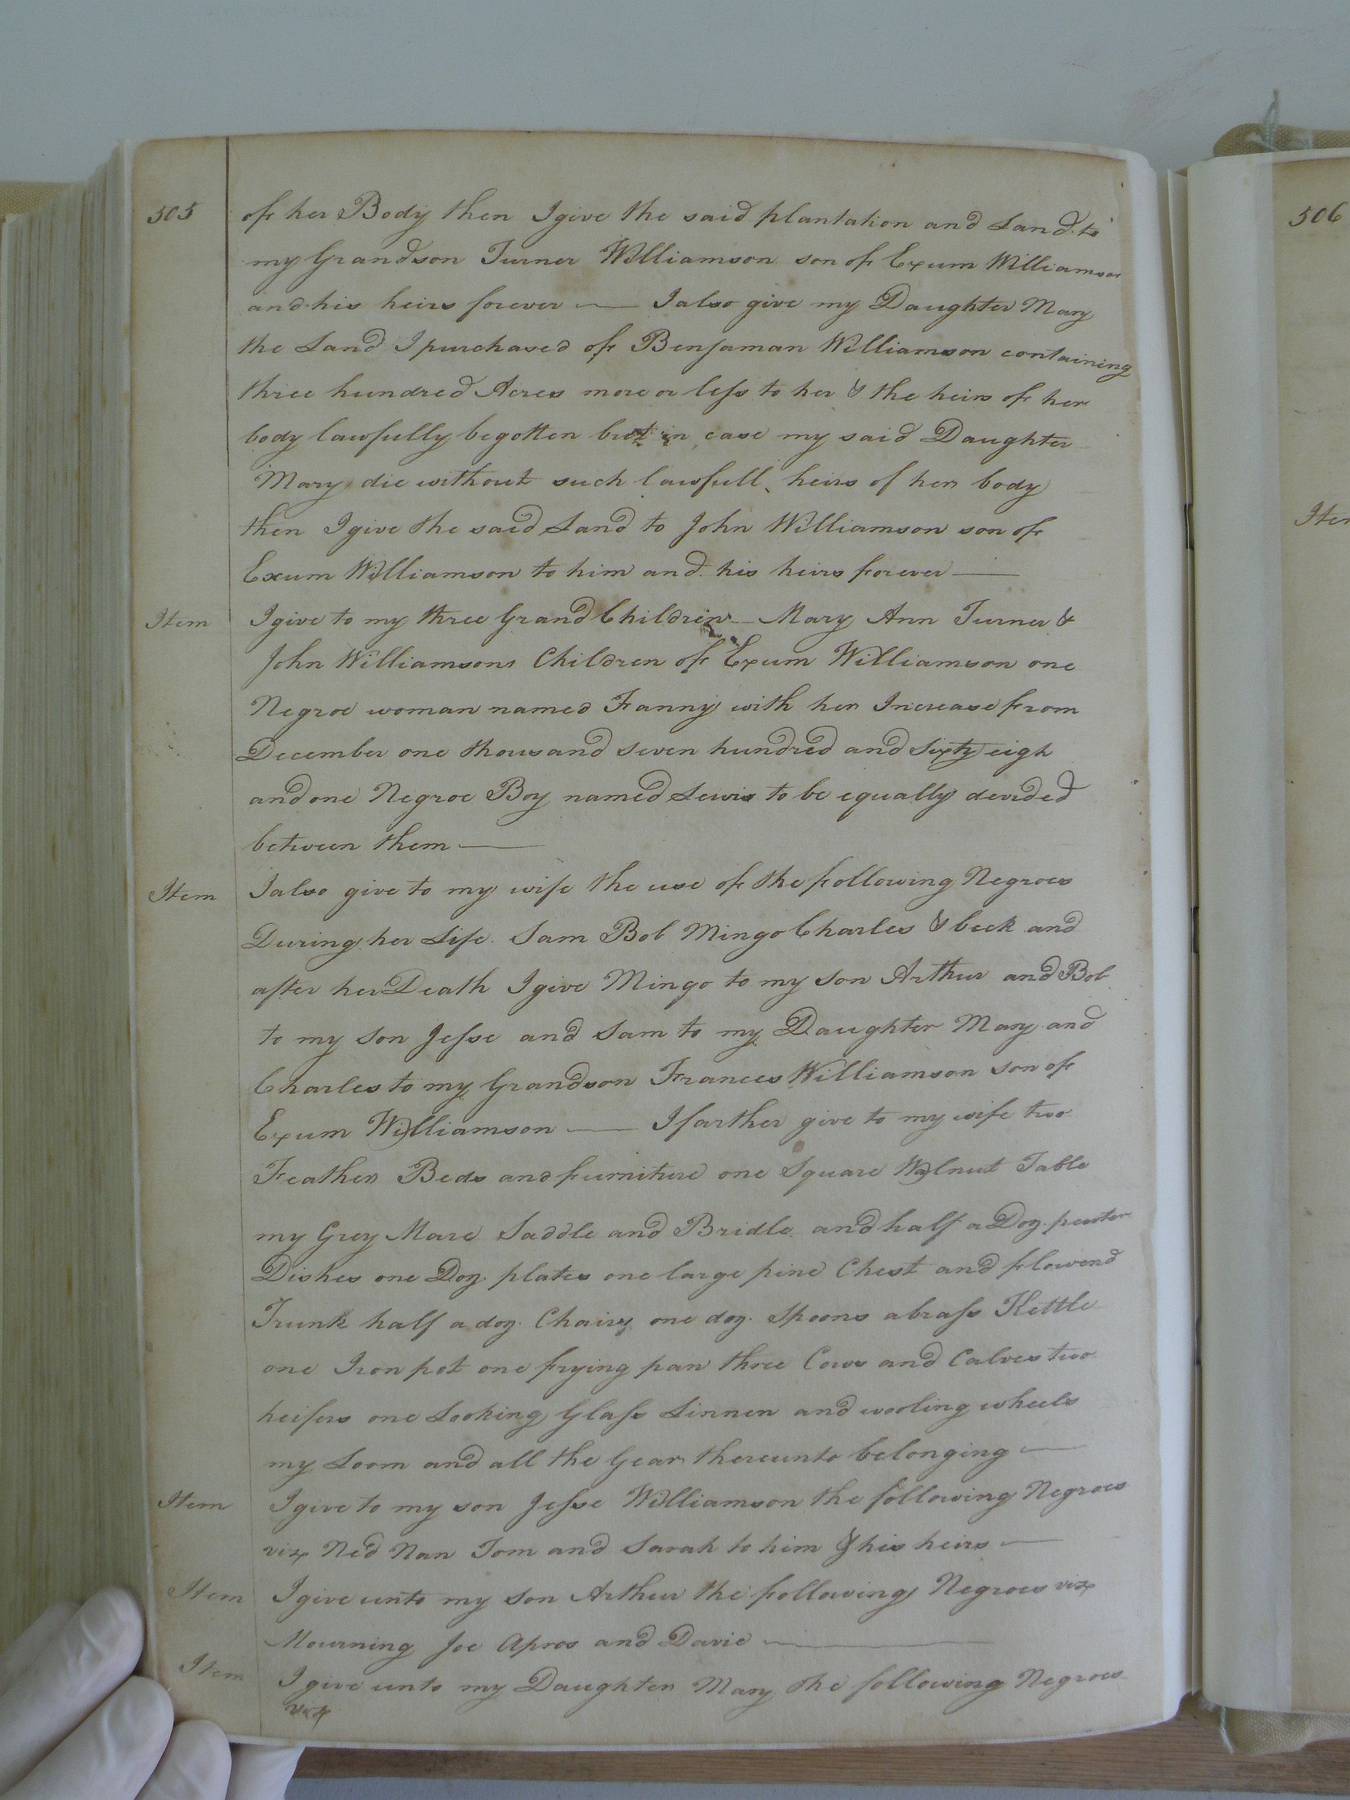 505
of her Body then I give the said plantation and Land to
my Grandson Turner Williamson son of Exum Williamson
and his heirs forever — I also give my Daughter Mary
the Land I purchased of Benjaman Williamson containing
three hundred Acres more or less to her & the heirs of her
body lawfully begotten but in case my said Daughter
Mary die without such lawfull heirs of her body
then I give the said Land to John Williamson son of
Exum Williamson to him and his heirs forever —
Item I give to my three Grand Children Mary Ann Turner &
John Williamsons Children of Exum Williamson one
Negroe woman named Fanny with her Increase from
December one thousand seven hundred and Sixty eigh
and one Negroe Boy named Lewis to be equally devided
between them —
Item I also give to my wife the use of the following Negroes
During her Life Sam Bob Mingo Charles & beck and
after her Death I give Mingo to my son Arthur and Bob
to my son Jesse and Sam to my Daughter Mary and
Charles to my Grandson Frances Williamson son of
Exum Williamson — I farther give to my wife two
Feather Beds and furniture one Square Walnut Table
my Grey Mare Saddle and Bridle and half a Doz. pewter
Dishes one Doz. plates one large pine Chest and flowerd
Trunk half a doz. Chairs one doz. Spoons a brass Kettle
one Iron pot one frying pan three Cows and Calves two
heifers one Looking Glass Linnen and wooling wheels
my Loom and all the Gear thereunto belonging —
Item I give to my son Jesse Williamson the following Negroes
vix Ned Nan Tom and Sarah to him & his heirs —
Item I give unto my son Arthur the following Negroes vix
Mourning Joe and Davie —
Item I give unto my Daughter Mary the following Negroes
vix
506
Item